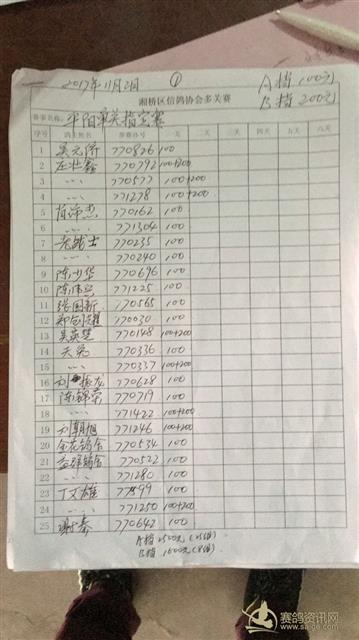 2017年11月2日 ① A档 100元
湘桥区信鸽协会多关赛 B档 200元
赛事名称: 平阳单关指定赛
序号 鸽主姓名 赛鸽补号 一关 二关 三关 四关 五关 六关
1 吴元济 770826 100
2 庄壮鑫 770792 100+200
3 〃 770577 100+200
4 〃 771278 100+200
5 770162 100
6 〃 771304 100
7 770235 100
8 〃 770240 100
9 陈少华 770696 100
10 771225 100
11 张国新 770565 100
12 770030 100
13 770148 100+200
14 天菊 770336 100
15 〃 770337 100+200
16 770628 100
17 陈锦荣 770719 100
18 〃 771422 100+200
19 刘朝旭 771246 100+200
20 金龙鸽舍 770534 100
21 鸽舍 770522 100
22 〃 771280 100
23 丁文雄 77599 100
24 〃 771250 100+200
25 谢泰 770642 100
A档 2500元(25羽)
B档 1600元(8羽)
赛鸽资讯网
www.saige.com